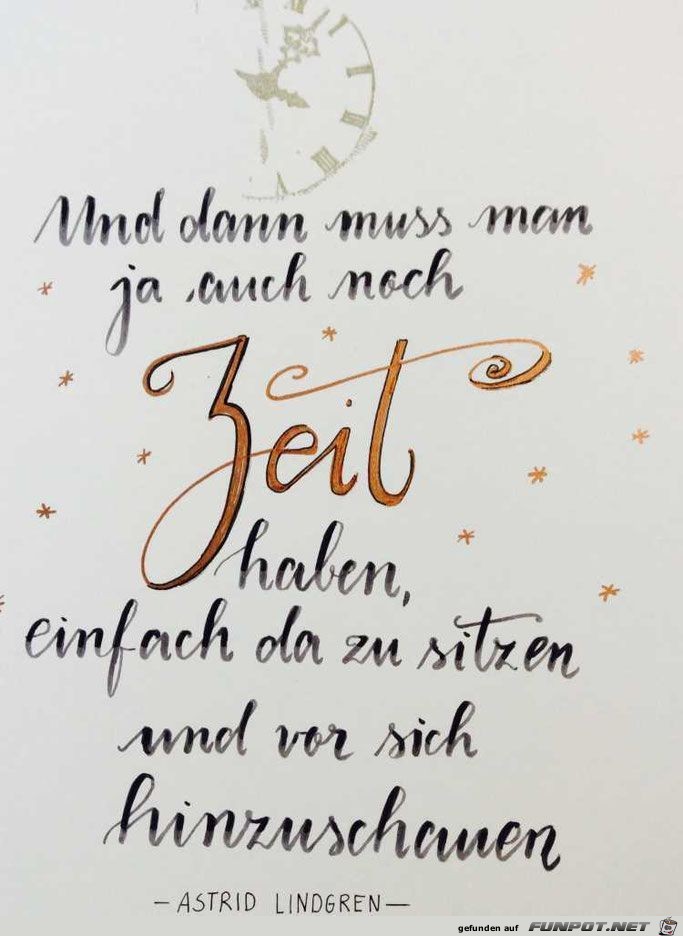 Und dann muss man
ja auch noch
Zeit
haben,
einfach da zu sitzen
und vor sich
hinzuschauen
— ASTRID LINDGREN —
gefunden auf FUNPOT.NET